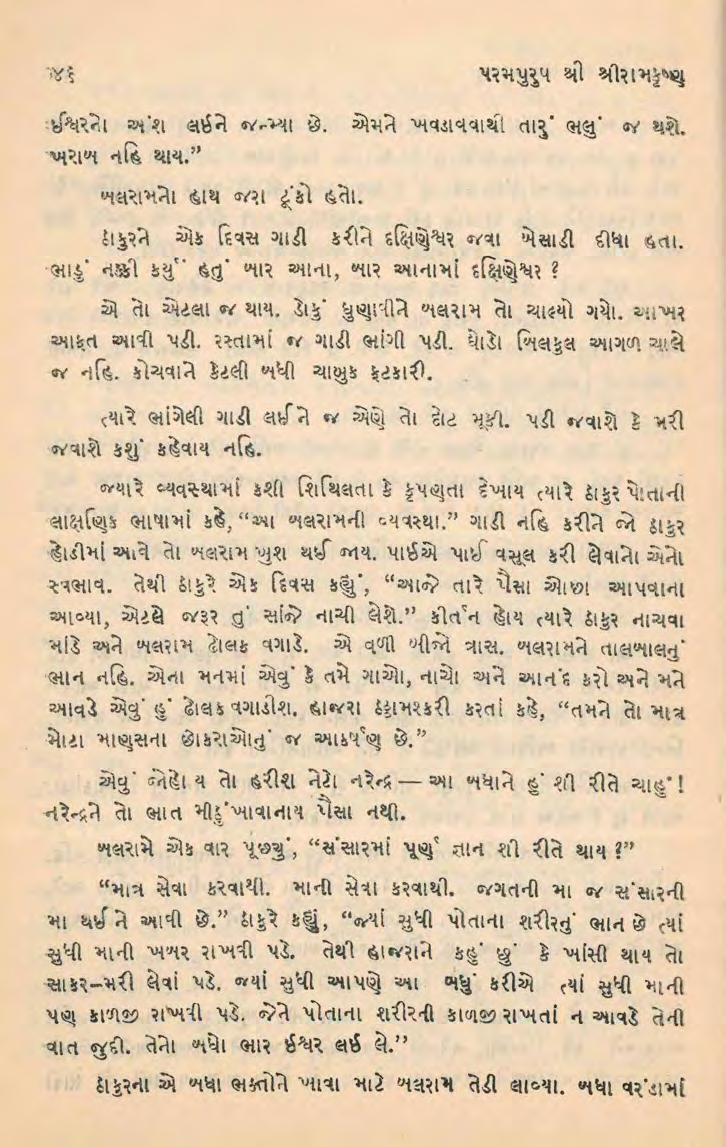 ૪૬ પરમપુરુષ શ્રી શ્રીરામકૃષ્ણ
ઈશ્વરનો અંશ લઈને જન્મ્યા છે. એમને ખવડાવવાથી તારું ભલું જ થશે.
ખરાબ નહિ થાય.”
બલરામનો હાથ જરા ટૂંકો હતો.
ઠાકુરને એક દિવસ ગાડી કરીને દક્ષિણેશ્વર જવા બેસાડી દીધા હતા.
ભાડું નક્કી કર્યું હતું બાર આના, બાર આનામાં દક્ષિણેશ્વર ?
એ તો એટલા જ થાય. ડોકું ધુણાવીને બલરામ તો ચાલ્યો ગયો. આખર
આફત આવી પડી. રસ્તામાં જ ગાડી ભાંગી પડી. ઘોડો બિલકુલ આગળ ચાલે
જ નહિ. કોચવાને કેટલી બધી ચાબુક ફટકારી.
ત્યારે ભાંગેલી ગાડી લઈને જ એણે તો દોટ મૂકી. પડી જવાશે કે મરી
જવાશે કશું કહેવાય નહિ.
જ્યારે વ્યવસ્થામાં કશી શિથિલતા કે કૃપણતા દેખાય ત્યારે ઠાકુર પોતાની
લાક્ષણિક ભાષામાં કહે, “આ બલરામની વ્યવસ્થા.” ગાડી નહિ કરીને જો ઠાકુર
હોડીમાં આવે તો બલરામ ખુશ થઈ જાય. પાઈએ પાઈ વસૂલ કરી લેવાનો એનો
સ્વભાવ. તેથી ઠાકુરે એક દિવસ કહ્યું, “આજે તારે પૈસા ઓછા આપવાના
આવ્યા, એટલે જરૂર તું સાંજે નાચી લેશે.” કીર્તન હોય ત્યારે ઠાકુર નાચવા
માંડે અને બલરામ ઢોલક વગાડે. એ વળી બીજો ત્રાસ. બલરામને તાલબાલનું
ભાન નહિ. એના મનમાં એવું કે તમે ગાઓ, નાચો અને આનંદ કરો અને મને
આવડે એવું હું ઢોલક વગાડીશ. હાજરા ઠઠ્ઠામશ્કરી કરતાં કહે, “તમને તો માત્ર
મોટા માણુસના છોકરાઓનું જ આકર્ષણ છે.”
એવું જોહો ય તો હરીશ નેટો નરેન્દ્ર — આ બધાને હું શી રીતે ચાહું !
નરેન્દ્રને તો ભાત મીઠું ખાવાનાય પૈસા નથી.
બલરામે એક વાર પૂછચું, “સંસારમાં પૂર્ણ જ્ઞાન શી રીતે થાય ?”
“માત્ર સેવા કરવાથી. માની સેવા કરવાથી. જગતની મા જ સંસારની
મા થઈ ને આવી છે.” ઠાકુરે કહ્યું, “જ્યાં સુધી પોતાના શરીરનું ભાન છે ત્યાં
સુધી માની ખબર રાખવી પડે. તેથી હાજરાને કહું છું કે ખાંસી થાય તો
સાકર–મરી લેવાં પડે. જ્યાં સુધી આપણે આ બધું કરીએ ત્યાં સુધી માની
પણ કાળજી રાખવી પડે. જેને પોતાના શરીરની કાળજી રાખતાં ન આવડે તેની
વાત જુદી. તેનો બધો ભાર ઈશ્વર લઈ લે.”
ઠાકુરના એ બધા ભક્તોને ખાવા માટે બલરામ તેડી લાવ્યા. બધા વરંડામાં